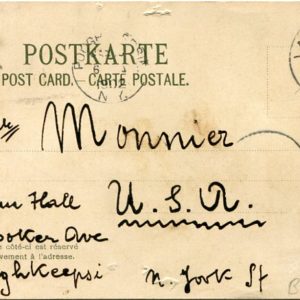 POSTKARTE
POST CARD. CARTE POSTALE.
Monnier
Hall U. S. A.
ooker Ave
côté-ci est réservé
vement à l'adresse.
ghkeepsi N. York St